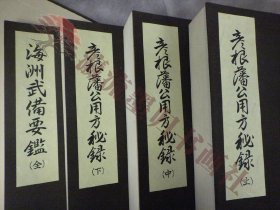 彦根藩公用方秘録
(上)
彦根藩公用方秘録
(中)
彦根藩公用方秘録
(下)
海洲武備要鑑
(全)